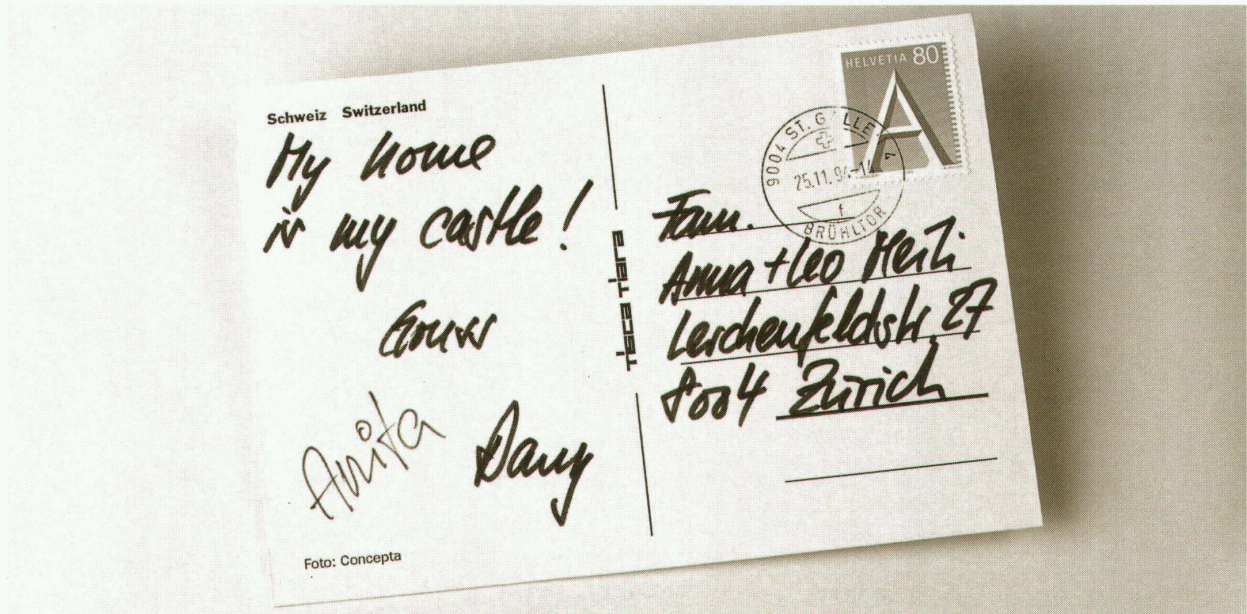 Schweiz Switzerland
My home
is my castle!
Gruss
Anita
Dany
Foto: Concepta
tisca tiara
HELVETIA 80
A
9004 ST. GALLEN 4
25.11.94-14
f
BRÜHLTOR
Fam.
Anna + Leo Meili
Lerchenfeldstr. 27
8004 Zürich